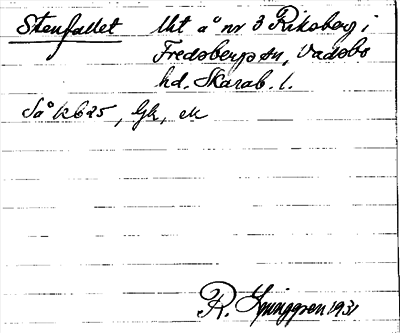 Stenfallet Utt å nr 3 Riksberg i
Fredsbergs sn, Vadsbo
hd. Skarab. l.
Så k 625, Gk, ek
R. Ljunggren 1931